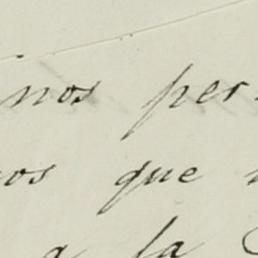 nos per
os que
a la